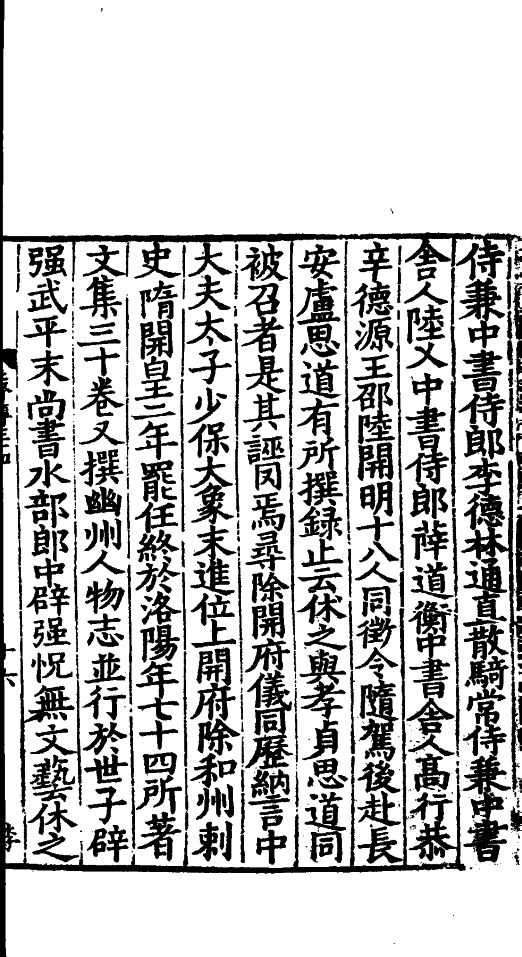 侍兼中書侍郎李德林通直散騎常侍兼中書
舍人陸乂中書侍郎薛道衡中書舍人髙行恭
辛德源王邵陸開明十八人同徵令隨駕後赴長
安盧思道有所撰録止云休之與孝貞思道同
被召者是其誣罔焉尋除開府儀同歷納言中
大夫太子少保大象末進位上開府除和州刺
史隋開皇二年罷任終於洛陽年七十四所著
文集三十卷又撰幽州人物志並行於世子辟
强武平末尚書水部郎中辟强怳無文藝休之
十六